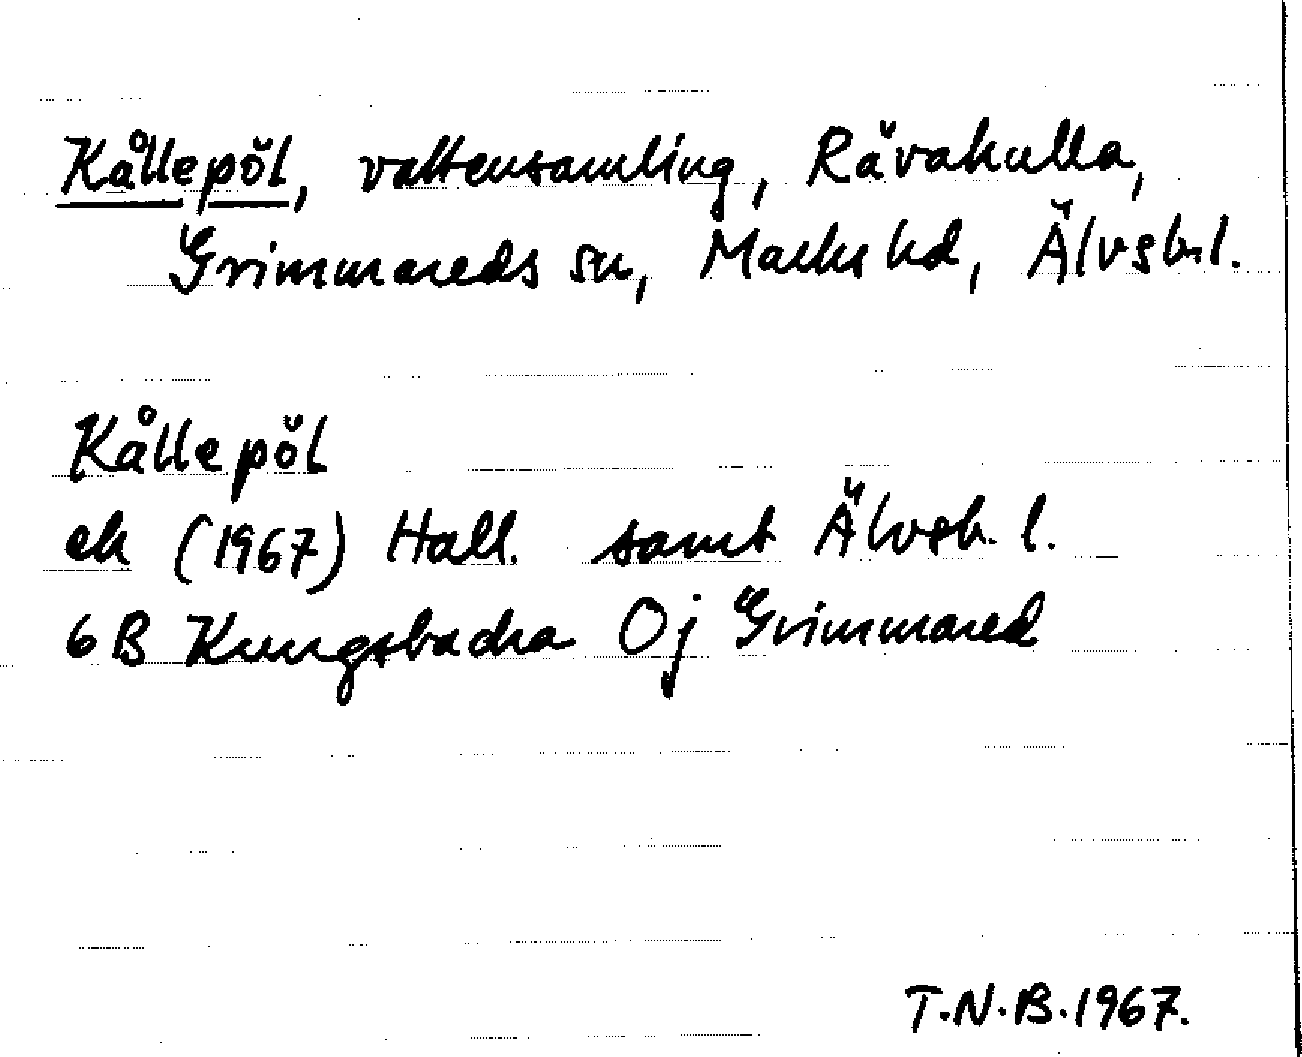 Kållepöl, vattensamling, Rävakulla,
Grimmareds sn, Marks hd, Älvsb.l.
Kållepöl
ek (1967) Hall. samt Älvsb. l.
6B Kungsbacka Oj Grimmared
T.N.B.1967.